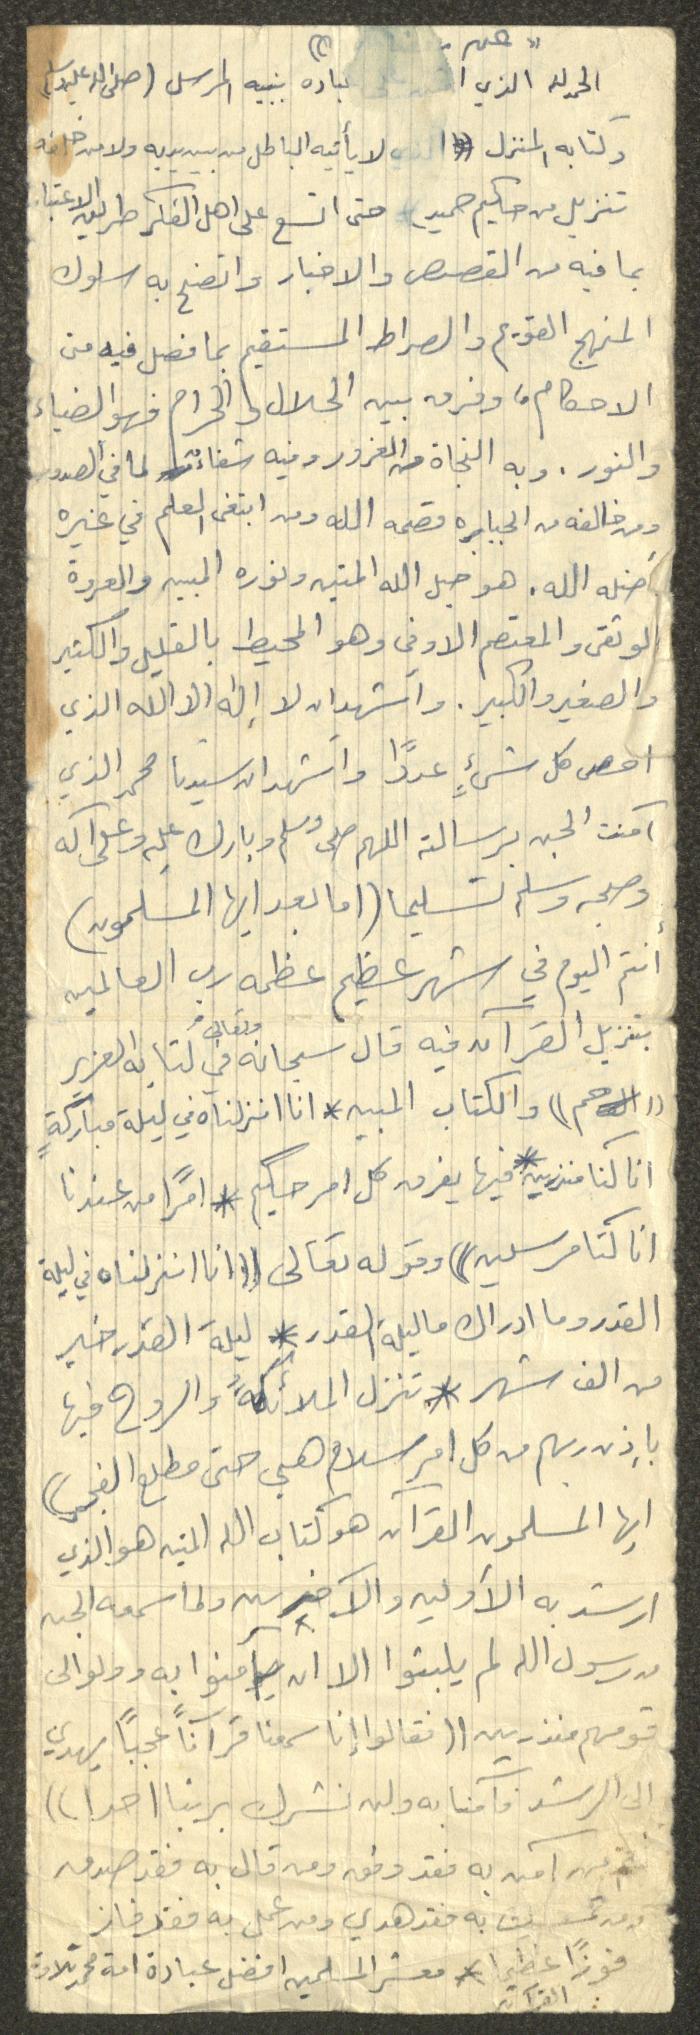 الحمد لله الذي عباده بنبيه المرسل (صلى الله عليه وسلم)
وكتابه المنزل الذي لا يأتيه الباطل من بين يديه ولا من خلفه
تنزيل من حكيم حميد) حتى اتسع على اهل الفكر طريق الاعتبار
بما فيه من القصص والاخبار واتضح به سلوك
المنهج القويم والصراط المستقيم بما فصل فيه من
الاحكام، وفرق بين الحلال والحرام فهو الضياء
والنور. وبه النجاة من الغرور وفيه شفاء لما في الصدور
ومن خالفه من الجبابره قصمه الله ومن ابتغى العلم في غيره
أضله الله. هو حبل الله المتين ونوره المبين والعروة
الوثقى والمعتصم الاوفى وهو المحيط بالقليل والكثير
والصغير والكبير. وأشهد ان لا إله الا الله الذي
احصى كل شيءٍ عددًا وأشهد ان سيدنا محمد الذي
آمنت الجن برسالته اللهم صلى وسلم وبارك عليه وعلى آله
وصحبه وسلم تسليما (اما بعد ايها المسلمون)
أنتم اليوم في شهر عظيم عظمه رب العالمين
بتنزيل القرآن فيه قال سبحانه وتعالى في كتابه العزيز
((حم)) والكتاب المبين * انا انزلناه في ليلة مباركةٍ
انا كنا منذرين * فيها يفرق كل امر حكيم * امرًا من عندنا
انا كنا مرسلين)) وقوله تعالى ((انا انزلناه في ليلة
القدر وما ادراك ما ليلة القدر * ليلة القدر خير
من الف شهر * تنزل الملائكة والروح فيها
بإذن ربهم من كل امر سلام هي حتى مطلع الفجر)
ايها المسلمون القرآن هو كتاب الله المتين هو الذي
ارشد به الأولين والآخرين ولما سمعه الجن
من رسول الله لم يلبثوا الا ان آمنوا به وولوا الى
قومهم منذرين ((فقالوا إنا سمعنا قرآناً عجباً يهدي
الى الرشد فآمنا به ولن نشرك بربنا احدا))
فمن آمن به فقد وفق ومن قال به فقد صدق
ومن تمسك به فقد هدي ومن عمل به فقد فاز
فوزًا عظيما * معشر المسلمين افضل عبادة امة محمد تلاوة
القرآن